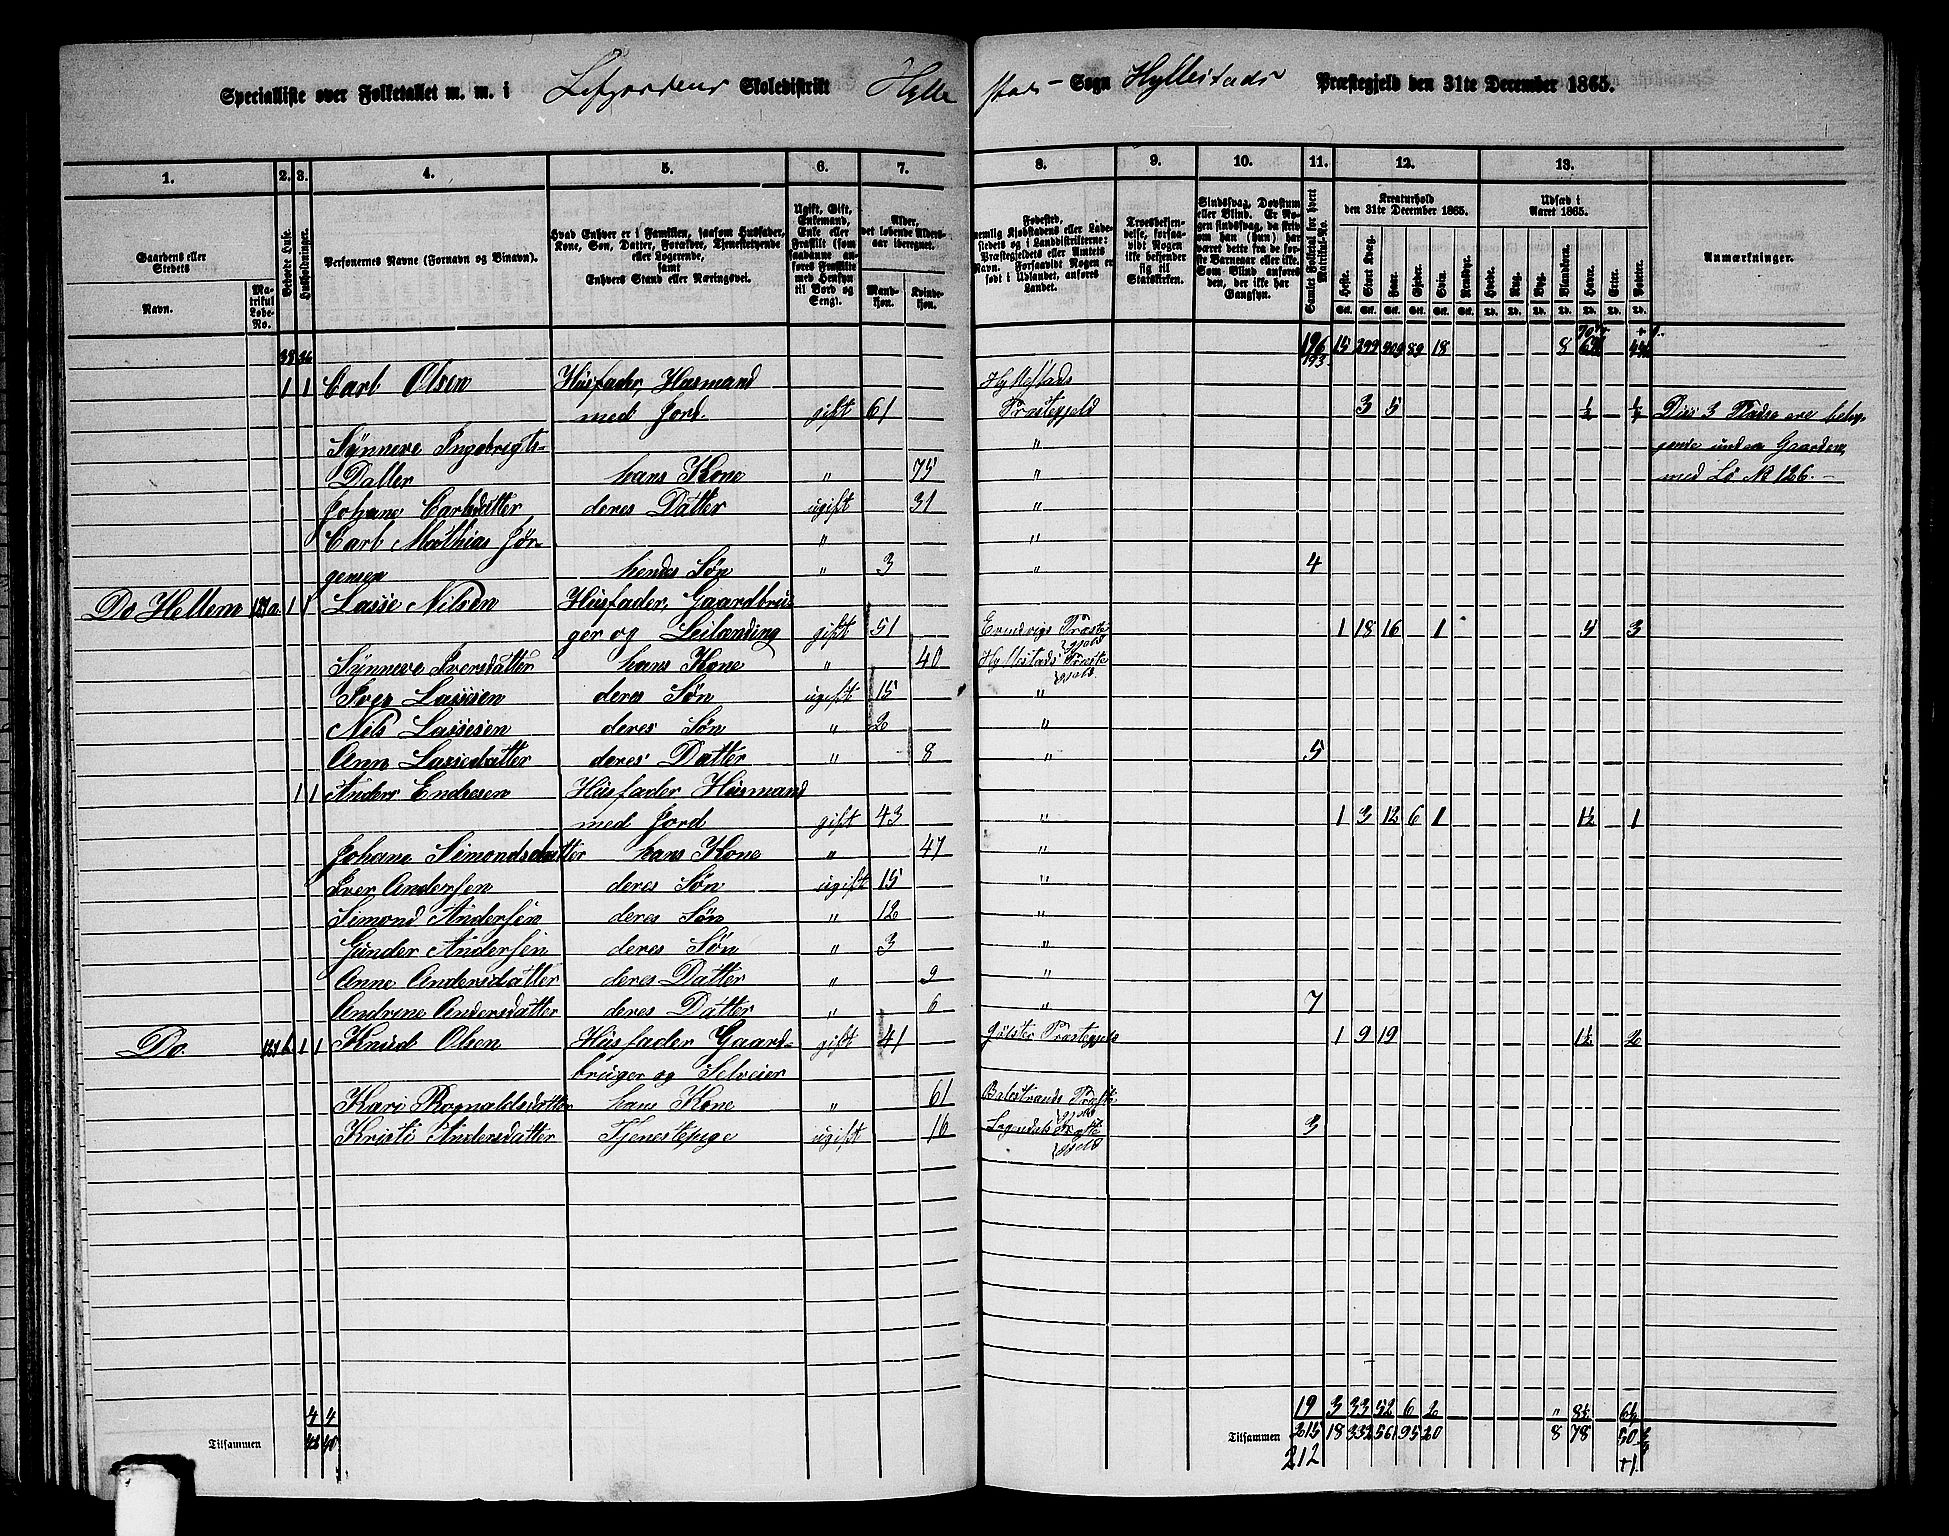 Specialliste over Folketallet m. m. i Lefjordens Skoledistrikt Hyllestads Sogn Hyllestads Præstegjeld den 31te December 1865.
1. 2. 3. 4. 5. 6. 7. 8. 9. 10. 11. 12. 13.
Gaardens eller Stedets
Navn. Matrikul Løbe-No.
Beboede Huse.
Husholdninger.
Personernes Navne (Fornavn og Binavn).
Hvad Enhver er i Familien, saasom Husfader, Kone, Søn, Datter, Forældre, Tjenestetyende eller Logerende, samt Enhvers Stand eller Næringsvei.
Ugift, Gift, Enkemand, Enke eller Fraskilt (som saadanne anføres Fraskilte med Hensyn til Bord og Seng).
Alder, det løbende Aldersaar iberegnet.
Mandkjøn. Kvindekjøn.
Fødested, nemlig Kjøbstadens eller Ladestedets og i Landdistrikterne: Præstegjeldets eller Amtets Navn. Forsaavidt Nogen er født i Udlandet, anføres Landet.
Troesbekjendelse, forsaavidt Nogen ikke bekjender sig til Statskirken.
Sindssvag, Døvstum eller Blind. Er Nogen sindssvag, da hvorvidt han (hun) har været dette fra de første Barneaar eller ikke. Som Blind anføres den, der ikke har Gangsyn.
Samlet Folketal for hvert Matrikul-No.
Kreaturhold den 31te December 1865.
Heste. Stort Kvæg. Faar. Gjeder. Svin. Rensdyr.
Udsæd i Aaret 1865.
Hvede. Rug. Byg. Blandkorn. Havre. Erter. Poteter.
Anmærkninger.
38 36 196 193 15 299 509 89 18 8
1 1 Carl Olsen Husfader, Husmand Hyllestads
med Jord. gift 61 Præstegjeld 3 5 ½ ½ Diss 3 Pladse ere belig-
Synneve Ingebrigts- " gende under Gaarden
Datter hans Kone " 75 " med Lø No 126.
Johane Carlsdatter deres Datter ugift 31 "
Carl Mathias Jør- " "
gensen hendes Søn " 3 " 4
Do Hellem 131a 1 1 Lasse Nilsen Husfader, Gaardbru-
ger og Leilænding gift 51 Evindvigs Præstegjeld 1 18 16 1 5 3
Synneve Iversdatter hans Kone " 40 Hyllestads Præstegjeld
Iver Lassesen deres Søn ugift 15 "
Nils Lassesen deres Søn " 2 "
Ann Lassedatter deres Datter " 8 " 5
1 1 Anders Endresen Husfader Husmand
med Jord gift 43 " 1 3 12 6 1 1½ 1
Johane Simondsdatter hans Kone " 47 "
Iver Andersen deres Søn ugift 15 "
Simond Andersen deres Søn " 12 "
Gunder Andersen deres Søn " 3 "
Anne Andersdatter deres Datter " 9 "
Andrine Andersdatter deres Datter " 6 " 7
Do. 131 b 1 1 Knud Olsen Husfader Gaard- gift 41 Jølster Præstegjeld 1 9 19 1½ 2
bruger og Selveier
Kari Rognaldsdatter hans Kone " 61 Balestrands Præstegjeld
Kristi Andersdatter Tjenestepige ugift 16 Sogndals Præstegjeld 3
4 4 19 3 33 52 6 2 " 8½ 6½
Tilsammen 42 40 Tilsammen 215 18 332 561 95 20 8 78 50
212 +1